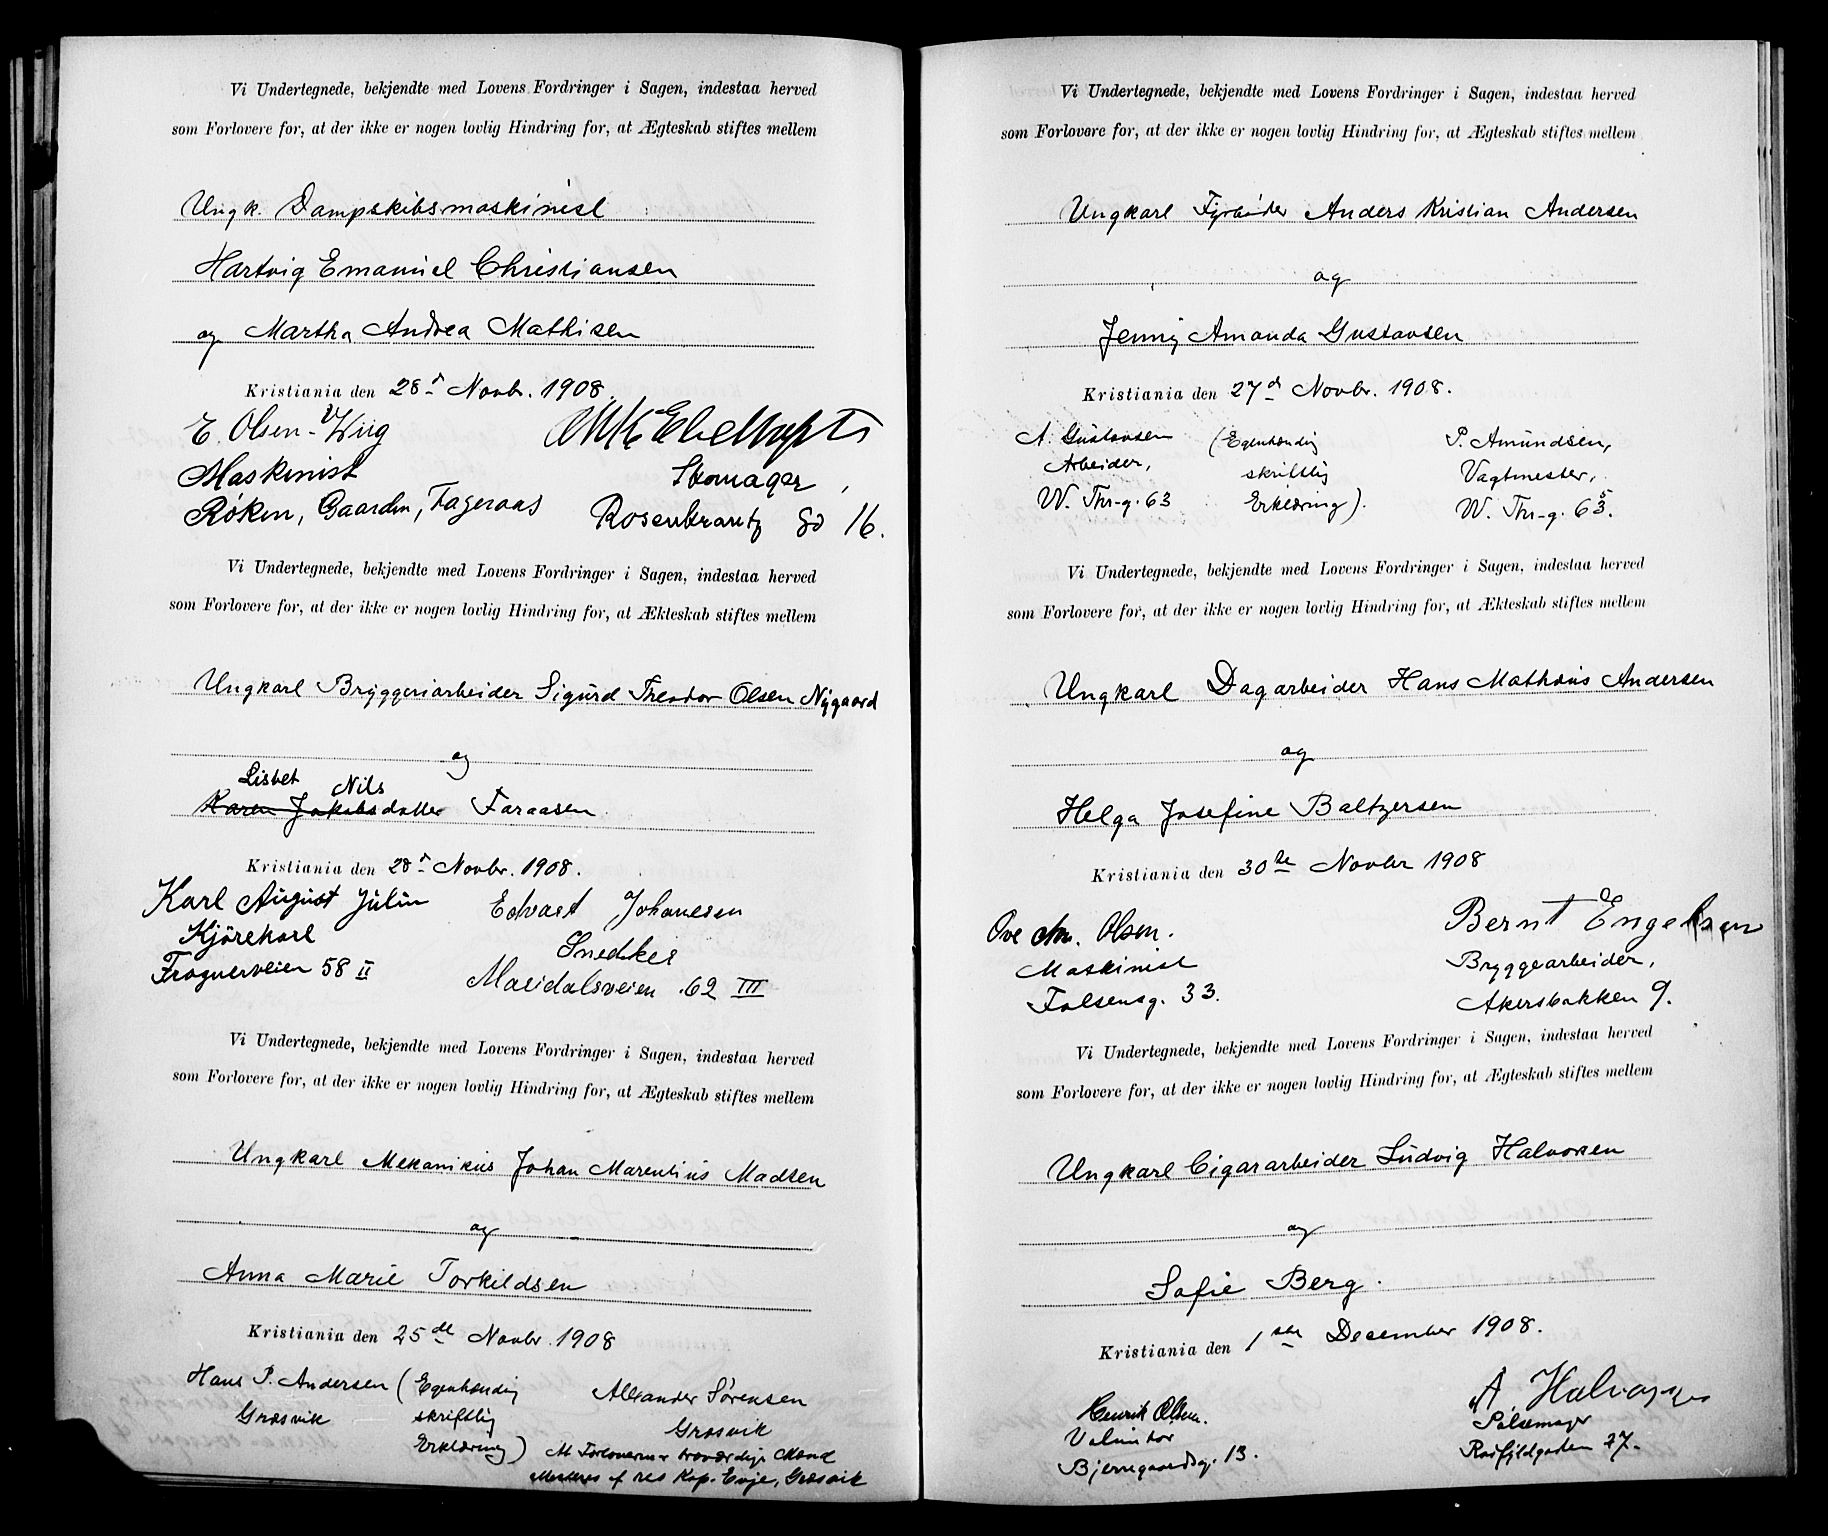 Vi Undertegnede, bekjendte med Lovens Fordringer i Sagen, indestaa herved
som Forlovere for, at der ikke er nogen lovlig Hindring for, at Ægteskab stiftes mellem
Ungk. Dampskibsmaskinist
Hartvig Emanuel Christiansen
og Martha Andrea Mathisen
Kristiania den 28d Novbr. 1908.
E. Olsen-Wiig
Maskinist
Røken, Gaarden, Fageraas
Skomager,
Rosenkrantz gd 16.
Vi Undertegnede, bekjendte med Lovens Fordringer i Sagen, indestaa herved
som Forlovere for, at der ikke er nogen lovlig Hindring for, at Ækteskab stiftes mellem
Ungkarl Bryggeriarbeider Sigurd Theodor Olsen Nygaard
og
Lisbet Nils
Karen Jakobsdatter Faraasen
Kristiania den 28d Novbr. 1908.
Karl August Julin
Kjörekarl
Frognerveien 58 II
Edvart Johanesen
Snedker
Maridalsveien 62 III
Vi Undertegnede, bekjendte med Lovens Fordringer i Sagen, indestaa herved
som Forlovere for, at der ikke er nogen lovlig Hindring for, at Ægteskab stiftes mellem
Ungkarl Mekanikus Johan Marentius Madsen
og
Anna Marie Torkildsen
Kristiania den 25de Novbr. 1908
Hans P. Andersen
Græsvik
(Egenhændig
skriftlig
Erklæring)
Alexander Sørensen
Græsvik
At Forloverne er troværdige Mænd
af res Kap. Evje, Græsvik
Vi Undertegnede, bekjendte med Lovens Fordringer i Sagen, indestaa herved
som Forlovere for, at der ikke er nogen lovlig Hindring for, at Ægteskab stiftes mellem
Ungkarl Fyrbøder Anders Kristian Andersen
og
Jenny Amanda Gustavsen
Kristiania den 27d Novbr. 1908.
A. Gustavsen
Arbeider,
W. Thr-g. 63
(Egenhændig
skriftlig
Erklæring).
P. Amundsen,
Vagtmester,
W. Thr-g. 65.
Vi Undertegnede, bekjendte med Lovens Fordringer i Sagen, indestaa herved
som Forlovere for, at der ikke er nogen lovlig Hindring for, at Ækteskab stiftes mellem
Ungkarl Dagarbeider Hans Mathæus Andersen
og
Helga Josefine Baltzersen
Kristiania den 30te Novbr 1908
Ove Olsen.
Maskinist
Falsensg. 33.
Bernt Engelsen
Bryggearbeider,
Akersbakken 9.
Vi Undertegnede, bekjendte med Lovens Fordringer i Sagen, indestaa herved
som Forlovere for, at der ikke er nogen lovlig Hindring for, at Ægteskab stiftes mellem
Ungkarl Cigararbeider Ludvig Halvorsen
og
Sofie Berg.
Kristiania den 1ste December 1908.
Henrik Olsen.
Volontør
Bjerregaardsg. 13.
A Halvorsen
Pølsemager
Rødfyldgaden 27.